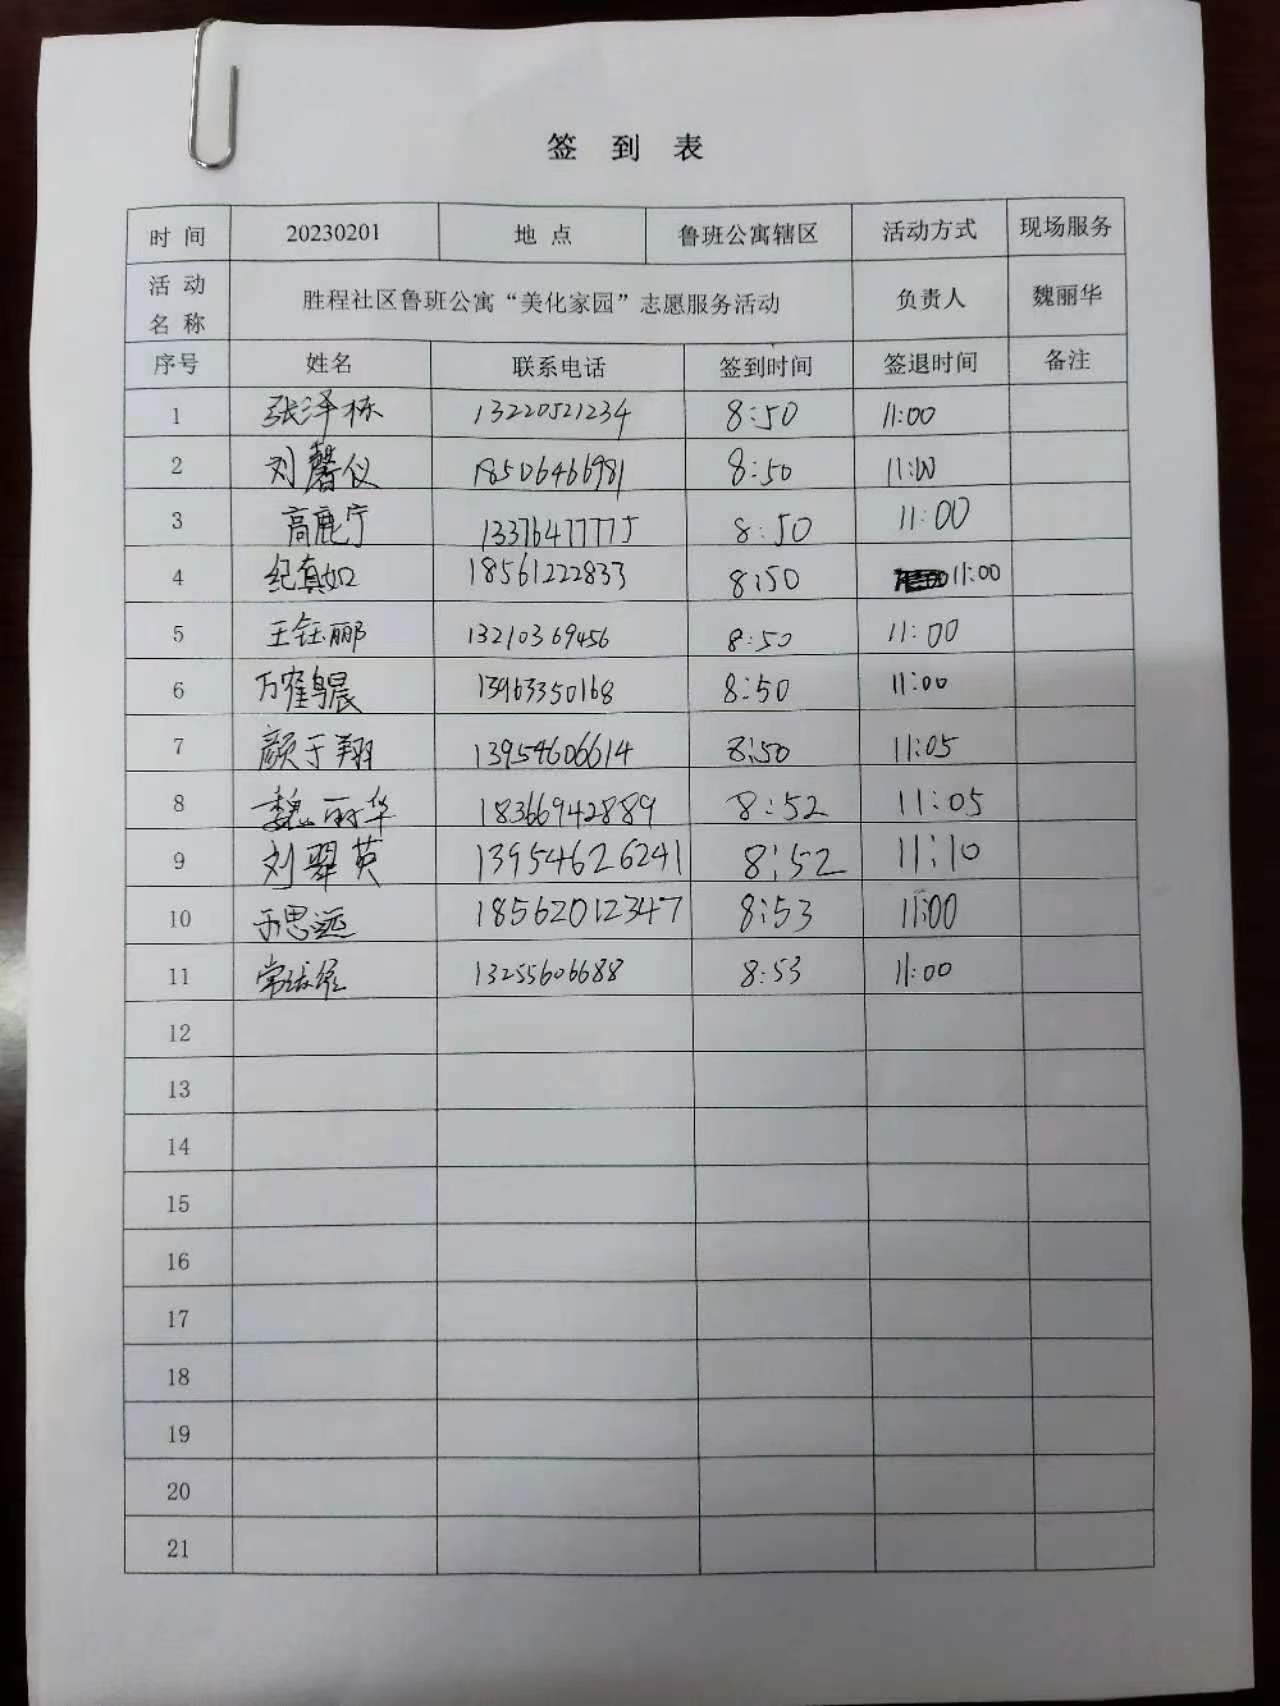 签 到 表
时 间 20230201 地 点 鲁班公寓辖区 活动方式 现场服务
活 动 名 称 胜程社区鲁班公寓“美化家园”志愿服务活动 负责人 魏丽华
序号 姓名 联系电话 签到时间 签退时间 备注
1 张泽栋 13220521234 8:50 11:00
2 刘馨仪 18506466981 8:50 11:00
3 高鹿宁 13376477775 8:50 11:00
4 纪真如 18561222833 8:50 11:00
5 王钰郦 13210369456 8:50 11:00
6 万寉晨 13963350168 8:50 11:00
7 颜于翔 13954606614 8:50 11:05
8 魏丽华 18366942889 8:52 11:05
9 刘翠英 13954626241 8:52 11:10
10 于思远 18562012347 8:53 11:00
11 常 13255606688 8:53 11:00
12
13
14
15
16
17
18
19
20
21